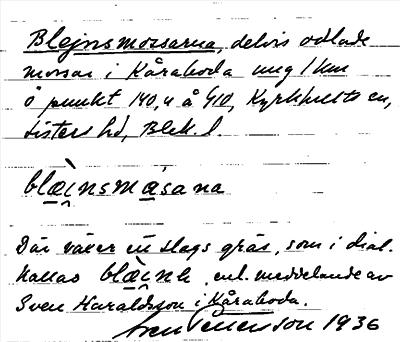 Blejnsmossarna, delvis odlade
mossar i Kåraboda ung 1 km
ö punkt 140,4 å G10, Kyrkhults sn,
Listers hd, Blek. l.
blæ̀i̯nsmɑsana
Där växer ett slags gräs, som i dial.
kallas blæ̀i̯ne enl. meddelande av
Sven Haraldsson i Kåraboda.
Sven Benson 1936